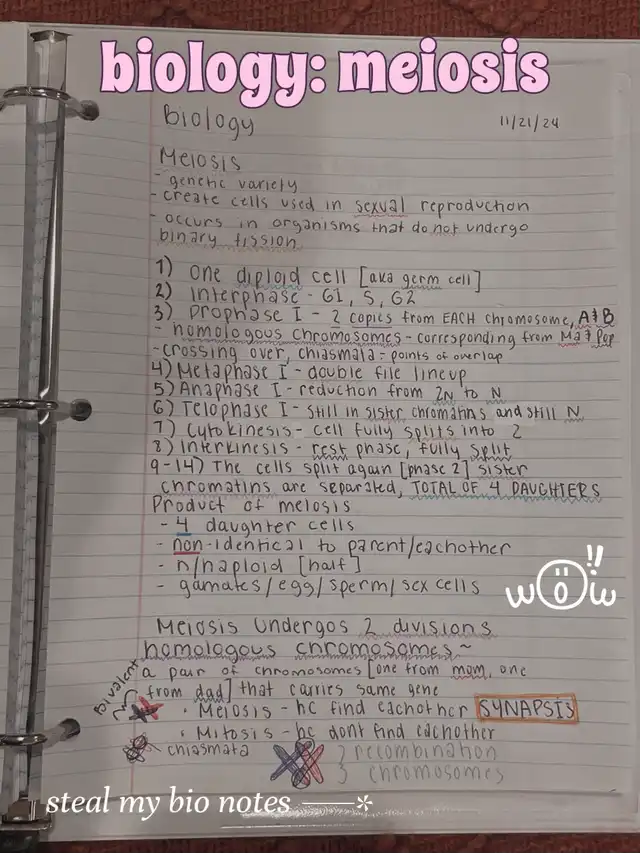 biology: meiosis
Biology
11/21/24
Meiosis
- genetic variety
- create cells used in sexual reproduction
- occurs in organisms that do not undergo
binary fission
1) one diploid cell [aka germ cell]
2) Interphase - G1, S, G2
3) Prophase I - 2 copies from EACH chromosome, A & B
- homologous chromosomes - corresponding from Ma & Pop
- crossing over, chiasmata = points of overlap
4) Metaphase I - double file lineup
5) Anaphase I - reduction from 2N to N
6) Telophase I - still in sister chromatins and still N
7) Cytokinesis - cell fully splits into 2
8) Interkinesis - rest phase, fully split
9-14) The cells split again [phase 2] sister
chromatins are separated, TOTAL OF 4 DAUGHTERS
Product of meiosis
- 4 daughter cells
- non-identical to parent/eachother
- n/haploid [half]
- gamates/egg/sperm/sex cells
wow!!
Meiosis undergos 2 divisions
homologous chromosomes ~
a pair of chromosomes [one from mom, one
from dad] that carries same gene
Bivalent
• Meiosis - hc find eachother SYNAPSIS
• Mitosis - hc dont find eachother
chiasmata
} recombination
} chromosomes
steal my bio notes